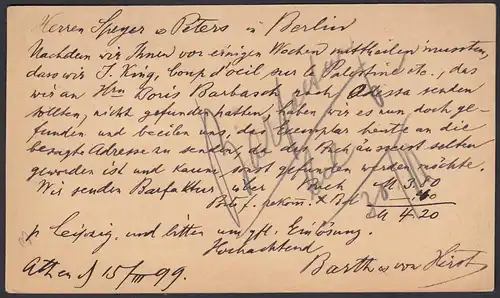 Herren Speyer & Peters in Berlin
Nachdem wir Ihnen vor einigen Wochen mittheilen mussten,
dass wir J. King, Coup d'oeil sur la Palestine etc., das
wir an Hrn Boris Barbasch nach Odessa senden
sollten, nicht gefunden hatten, haben wir es nun doch ge-
funden und beeilen uns, das Exemplar heute an die
besagte Adresse zu senden, da das Buch äusserst selten
geworden ist und kaum sonst gefunden werden möchte.
Wir senden Barfaktur über Buch M 3.50
M 4.20
p. Leipzig, und bitten um gfl. Einlösung.
Hochachtend
Athen d 15/III 99. Barth & von Hirst